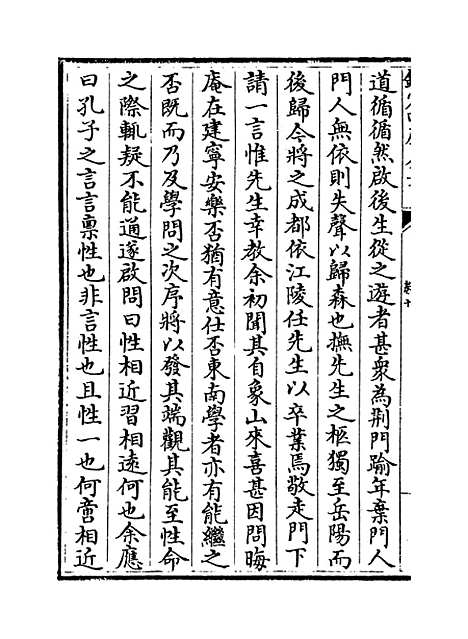 道循循然啟後生從之遊者甚衆為荆門踰年棄門人
門人無依則失聲以歸森也撫先生之柩獨至岳陽而
後歸今將之成都依江陵任先生以卒業焉敬走門下
請一言惟先生幸教余初聞其自象山來喜甚因問晦
庵在建寧安樂否猶有意仕否東南學者亦有能繼之
否既而乃及學問之次序將以發其端觀其能至性命
之際輒疑不能通遂啟問曰性相近習相逺何也余應
曰孔子之言言禀性也非言性也且性一也何啻相近